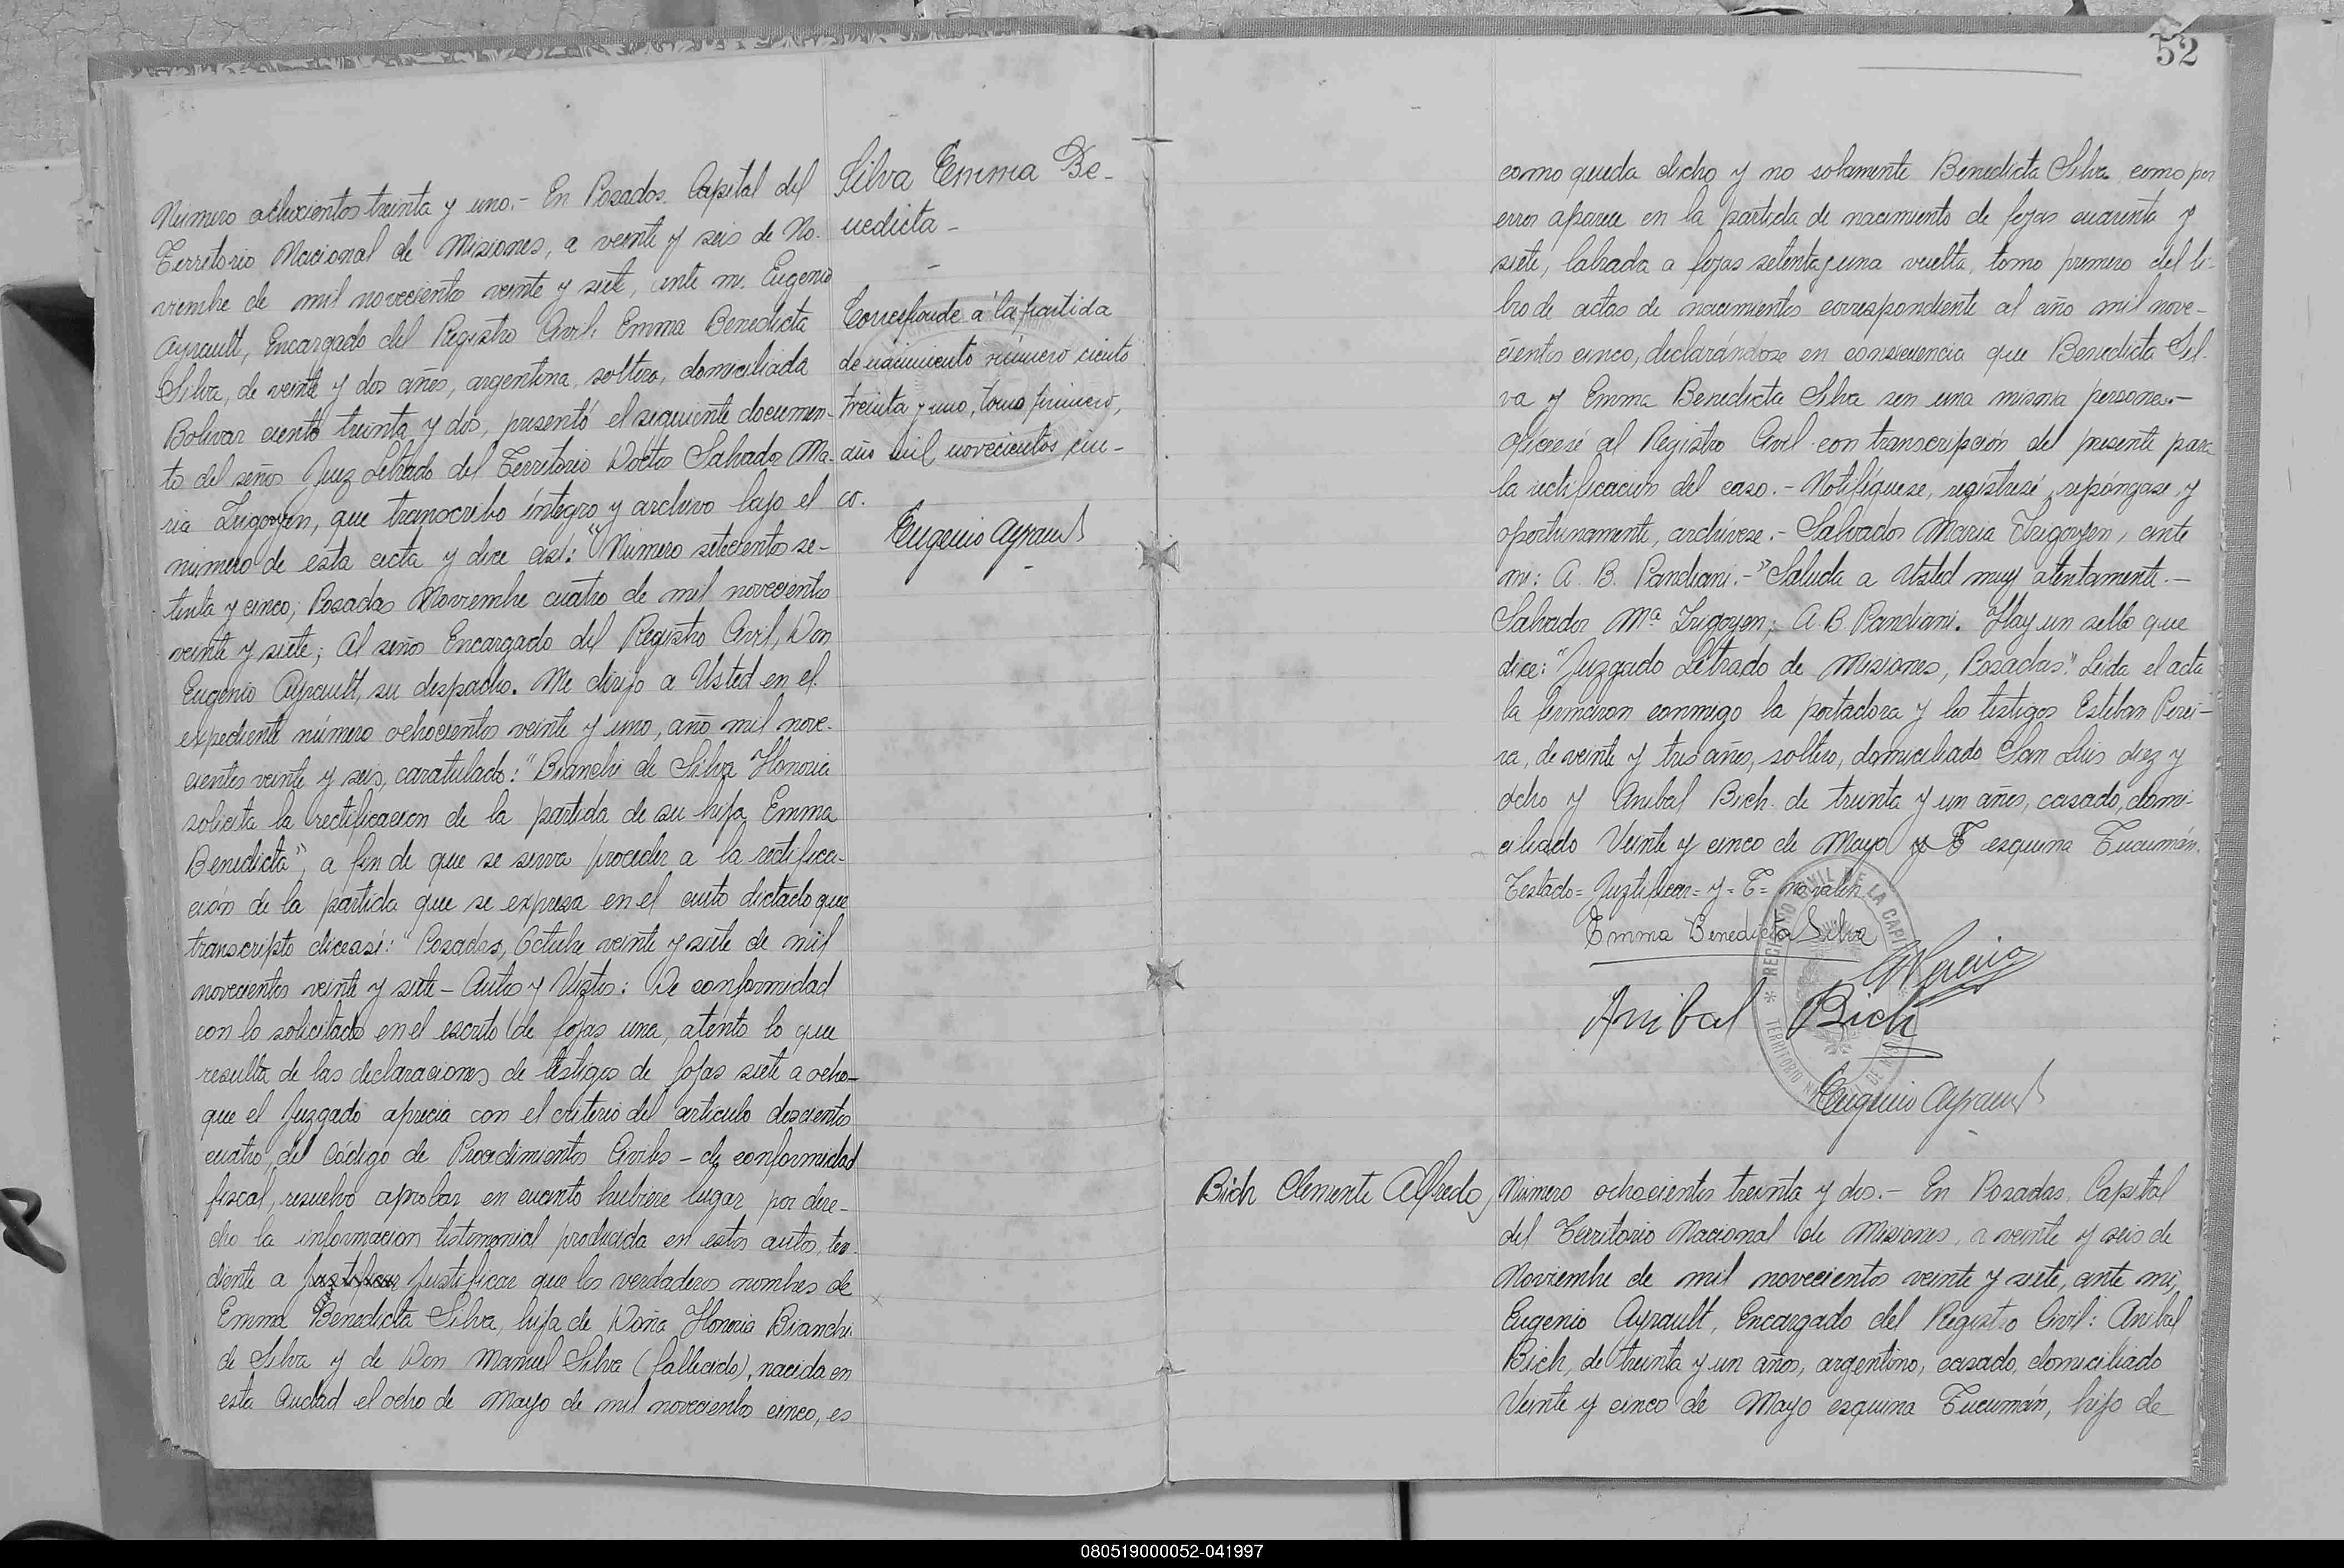 Número ochocientos treinta y uno.- En Posadas, Capital del
Territorio Nacional de Misiones, a veinte y seis de No-
viembre de mil novecientos veinte y siete, ante mi, Eugenio
Ayrault, Encargado del Registro Civil: Emma Benedicta
Silva, de veinte y dos años, argentina, soltera, domiciliada
Bolivar ciento treinta y dos, presentó el siguiente documen-
to del señor Juez Letrado del Territorio Doctor Salvador Ma-
ria Irigoyen, que transcribo íntegro y archivo bajo el
número de esta acta y dice asi: "Número setecientos se-
tenta y cinco; Posadas Noviembre cuatro de mil novecientos
veinte y siete; Al señor Encargado del Registro Civil, Don
Eugenio Ayrault, su despacho. Me dirijo a Usted en el
expediente número ochocientos veinte y uno, año mil nove-
cientos veinte y seis, caratulado: "Bianchi de Silva Honoria
solicita la rectificacion de la partida de su hija Emma
Benedicta", a fin de que se sirva proceder a la rectifica-
ción de la partida que se expresa en el auto dictado que
transcripto dice asi: "Posadas, Octubre veinte y siete de mil
novecientos veinte y siete - Autos y Vistos: De conformidad
con lo solicitado en el escrito de fojas una, atento lo que
resulta de las declaraciones de testigos de fojas siete a ocho-
que el Juzgado aprecia con el criterio del articulo doscientos
cuatro, del Código de Procedimientos Civiles - de conformidad
fiscal, resuelvo aprobar en cuanto hubiere lugar por dere-
cho la informacion testimonial producida en estos autos, ten-
diente a Juztificar Justificar que los verdaderos nombres de
Emma Benedicta Silva, hija de Doña Honoria Bianchi
de Silva y de Don Manuel Silva (fallecido), nacida en
esta Ciudad el ocho de Mayo de mil novecientos cinco, es
Silva Emma Be-
nedicta -
-
Corresponde a la partida
de nacimiento número ciento
treinta y uno, tomo primero,
año mil novecientos cin-
co.
Eugenio Ayrault
52
como queda dicho y no solamente Benedicta Silva como por
error aparece en la partida de nacimiento de fojas cuarenta y
siete, labrada a fojas setenta y una vuelta, tomo primero del li-
bro de actas de nacimientos correspondiente al año mil nove-
cientos cinco, declarándose en consecuencia que Benedicta Sil-
va y Emma Benedicta Silva son una misma persona.-
ofíciese al Registro Civil con transcripción del presente para
la rectificacion del caso.- Notifíquese, regístrese, repóngase y
oportunamente, archívese.- Salvador Maria Irigoyen, ante
mi: A. B. Pandiani.-" Saluda a Usted muy atentamente.-
Salvador Mª Irigoyen; A. B. Pandiani. Hay un sello que
dice: "Juzgado Letrado de Misiones, Posadas." Leída el acta
la firmaron conmigo la portadora y los testigos Esteban Perei-
ra, de veinte y tres años, soltero, domiciliado San Luis diez y
ocho y Anibal Bich de treinta y un años, casado, domi-
ciliado Veinte y cinco de Mayo y T esquina Tucumán.
Testado= Juztificar= y= T= no valen
Emma Benedicta Silva
Anibal Bich
Eugenio Ayrault
REGISTRO CIVIL DE LA CAPITAL
TERRITORIO NACIONAL DE MISIONES
Bich Clemente Alfredo
Número ochocientos treinta y dos.- En Posadas, Capital
del Territorio Nacional de Misiones, a veinte y seis de
Noviembre de mil novecientos veinte y siete, ante mi,
Eugenio Ayrault, Encargado del Registro Civil: Anibal
Bich, de treinta y un años, argentino, casado, domiciliado
Veinte y cinco de Mayo esquina Tucumán, hijo de
080519000052-041997